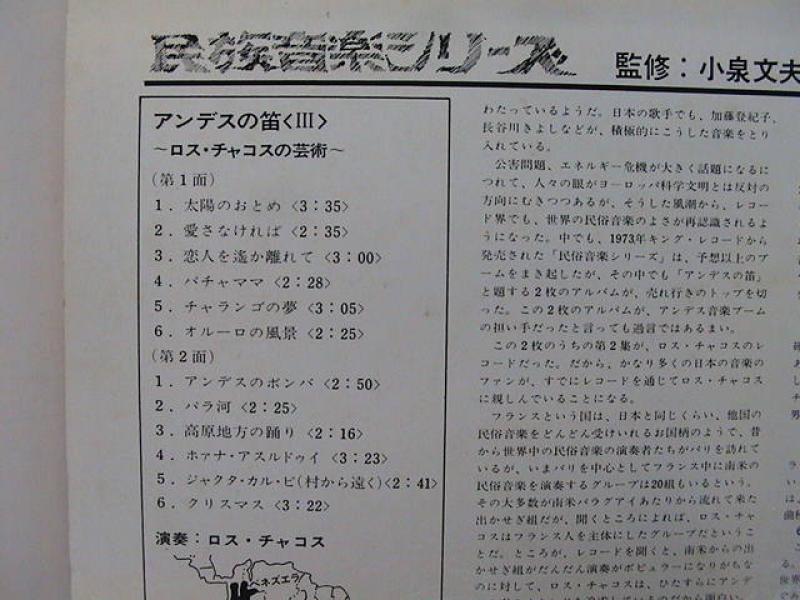 民族音楽シリーズ
監修：小泉文夫
アンデスの笛〈III〉
～ロス・チャコスの芸術～
（第１面）
１．太陽のおとめ〈3：35〉
２．愛さなければ〈2：35〉
３．恋人を遙か離れて〈3：00〉
４．パチャママ〈2：28〉
５．チャランゴの夢〈3：05〉
６．オルーロの風景〈2：25〉
（第２面）
１．アンデスのボンバ〈2：50〉
２．パラ河〈2：25〉
３．高原地方の踊り〈2：16〉
４．ホァナ・アスルドゥイ〈3：23〉
５．ジャクタ・カル・ピ(村から遠く)〈2：41〉
６．クリスマス〈3：22〉
演奏：ロス・チャコス
ベネズエラ
わたっているようだ。日本の歌手でも、加藤登紀子、
長谷川きよしなどが、積極的にこうした音楽をとり
入れている。
公害問題、エネルギー危機が大きく話題になるに
つれて、人々の眼がヨーロッパ科学文明とは反対の
方向にむきつつあるが、そうした風潮から、レコー
ド界でも、世界の民俗音楽のよさが再認識されるよ
うになった。中でも、1973年キング・レコードから
発売された「民俗音楽シリーズ」は、予想以上のブ
ームをまき起したが、その中でも「アンデスの笛」
と題する２枚のアルバムが、売れ行きのトップを切
った。この２枚のアルバムが、アンデス音楽ブーム
の担い手だったと言っても過言ではあるまい。
この２枚のうちの第２集が、ロス・チャコスのレ
コードだった。だから、かなり多くの日本の音楽の
ファンが、すでにレコードを通じてロス・チャコス
に親しんでいることになる。
フランスという国は、日本と同じくらい、他国の
民俗音楽をどんどん受けいれるお国柄のようで、昔
から世界中の民俗音楽の演奏者たちがパリを訪れて
いるが、いまパリを中心としてフランス中に南米の
民俗音楽を演奏するグループは20組もいるという。
その大多数が南米パラグアイあたりから流れて来た
出かせぎ組だが、聞くところによれば、ロス・チャ
コスはフランス人を主体にしたグループだというこ
とだ。ところが、レコードを聞くと、南米からの出
かせぎ組がだんだん演奏がポピュラーになりがちな
のに対して、ロス・チャコスは、ひたすらにアンデ